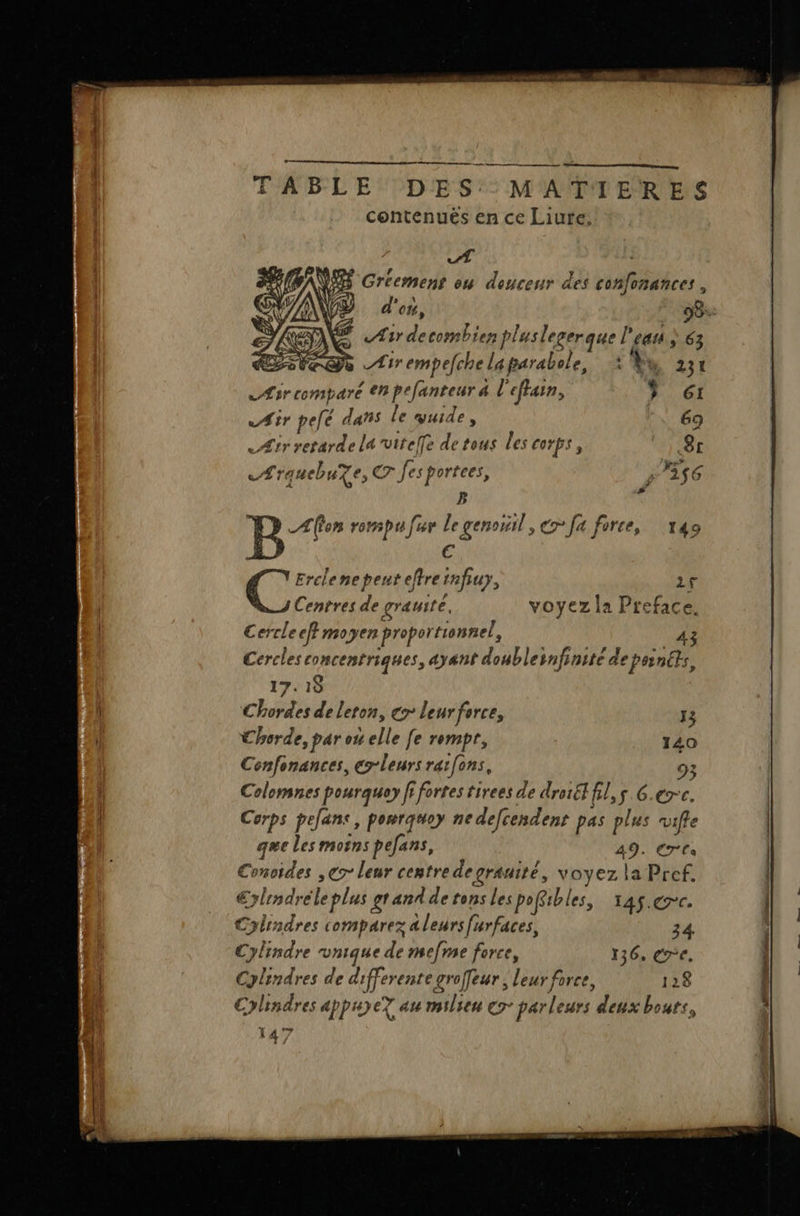 TABLE DES MATIERES
contenuës en ce Liure.
A
AGréement ou douceur des conſonances,
d'où, 98
Air de combien plus leger que l'eau, 63
Air empeſche la parabole, 231
Air comparé en peſanteur à l'eſtain, 61
Air peſé dans le vuide, 69
Air retarde la viteſſe de tous les corps, 81
ArquebuZe, & ſes portees, 256
B
BAſton rompu ſur le genoüil, & ſa force, 149
C
CErcle ne peut eſtre infiuy, 25
Centres de grauité, voyez la Preface.
Cercle eſt moyen proportionnel, 43
Cercles concentriques, ayant double infinité de poinĉts,
17. 18
Chordes de leton, & leur force, 13
Chorde, par où elle ſe rompt, 140
Conſonances, & leurs raiſons, 93
Colomnes pourquoy ſi fortes tirees de droiĉt fil, 5. 6. &c.
Corps peſans, pourquoy ne deſcendent pas plus viſte
que les moins peſans, 49. &c.
Conoides, & leur centre de grauité, voyez la Pref.
Cylindre le plus grand de tous les poſſibles, 145. &c.
Cylindres comparez à leurs ſurfaces, 34
Cylindre vnique de meſme force, 136. &c.
Cylindres de differente groſſeur, leur force, 128
Cylindres appuyeZ au milieu & par leurs deux bouts,
147